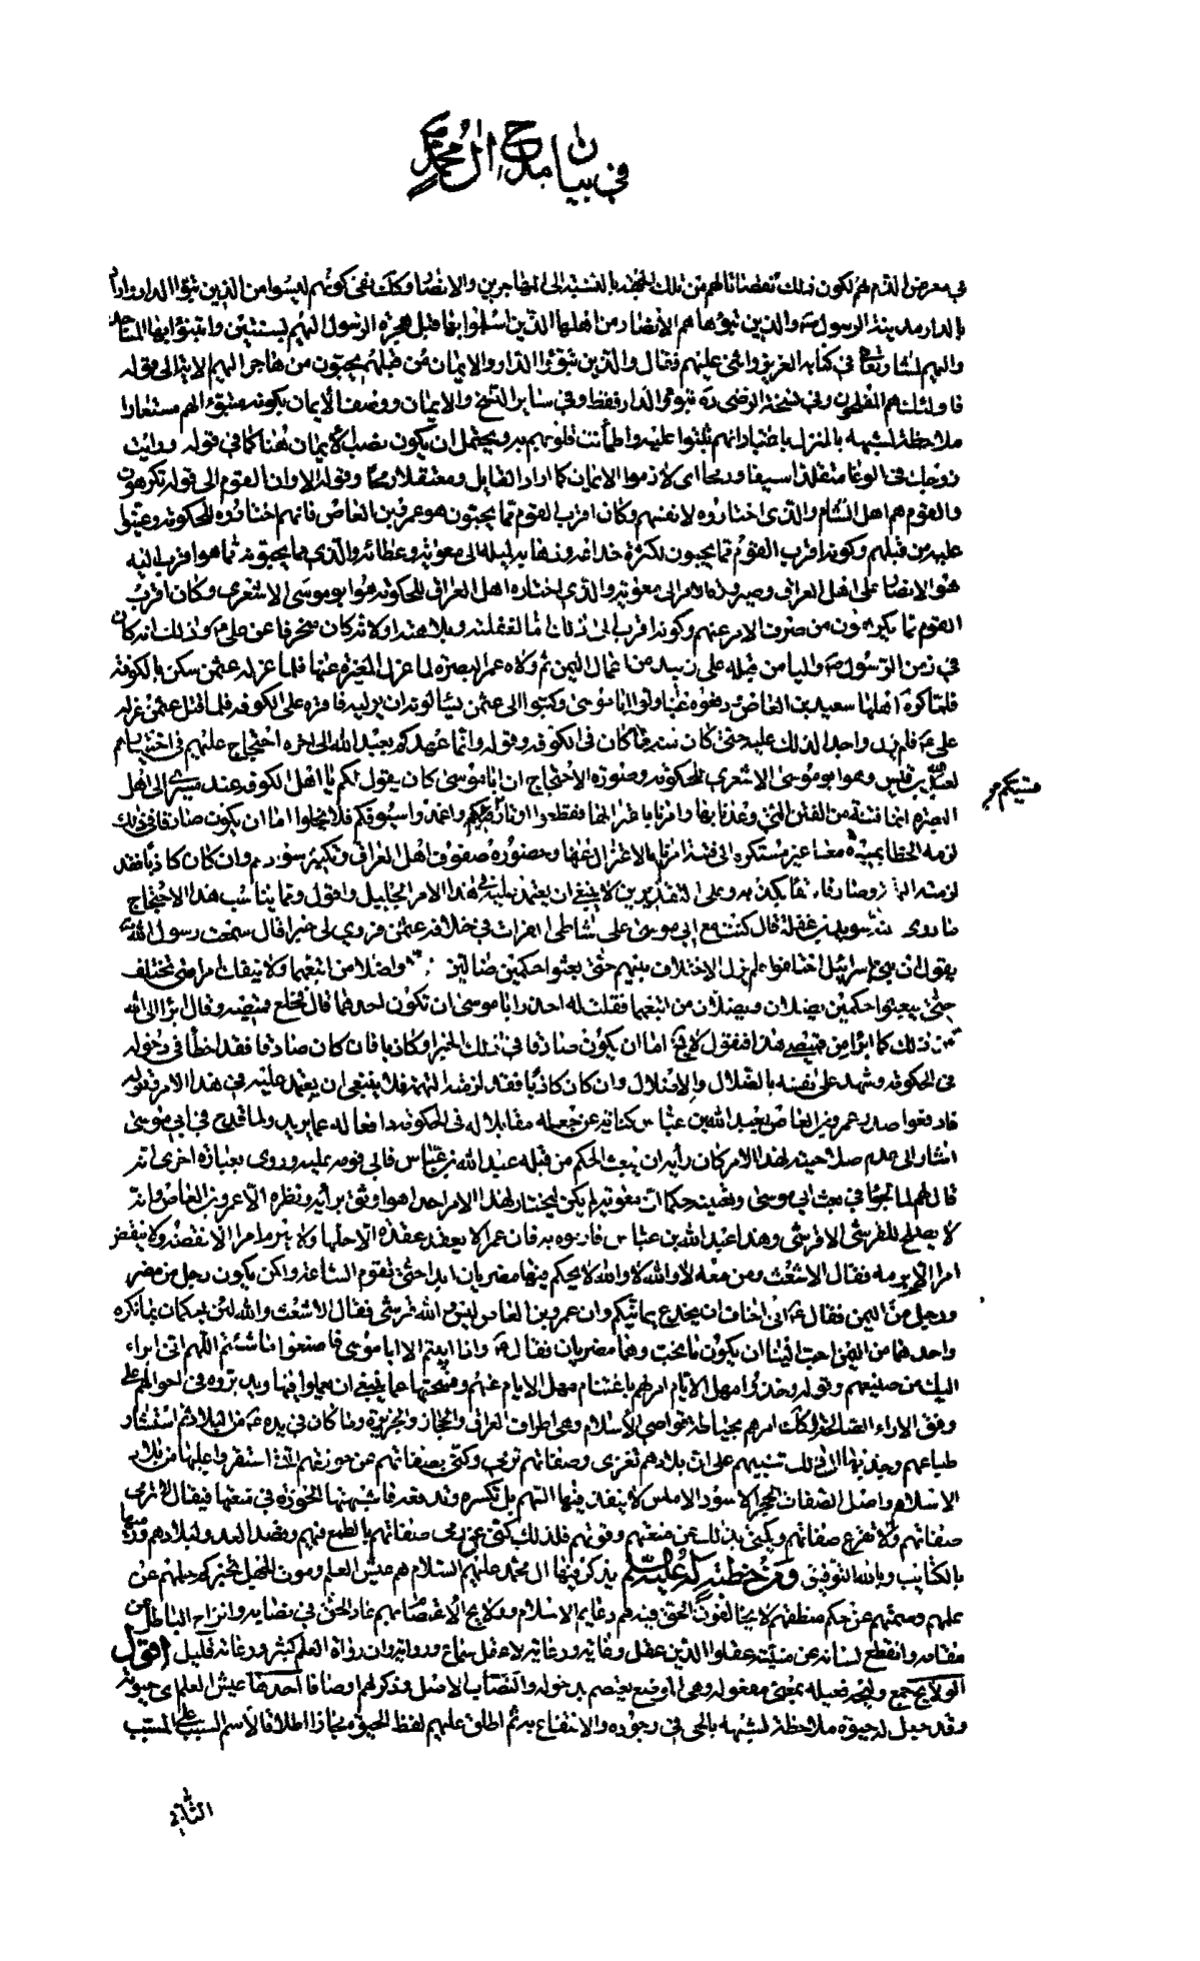 في بيان مدايح ال محمد
في معرض الذم لهم لكون ذلك نقصانا لهم من تلك الجهة بالنسبة الى المهاجرين والانصار وكذلك نفى كونهم ليسوا من الذين تبوؤا الدار واراد
بالدار مدينة الرسول ص والذين تبوؤها هم الانصار من اهلها الذين اسلموا بها قبل هجرة الرسول اليهم بسنتين وابتنوا بها المساجد
واليهم اشار تعالى في كتابه العزيز واثنى عليهم فقال والذين تبوؤا الدار والايمان من قبلهم يحبون من هاجر اليهم الاية الى قوله
فاولئك هم المفلحون وفي نسخة الرضى ره تبوؤا الدار فقط وفي ساير النسخ والايمان ووصف الايمان بكونه متبوءا لهم مستعارا
ملاحظة لشبهه بالمنزل باعتبار انهم ثبتوا عليه واطمأنت قلوبهم به ويحتمل ان يكون نصب الايمان هنا كما في قوله ورايت
زوجك في الوغا متقلدا سيفا ورمحا اى لازموا الايمان كما اراد القايل ومعتقلا رمحا وقوله الا وان القوم الى قوله تكرهون
والقوم هم اهل الشام والذى اختاروه لانفسهم وكان اقرب القوم مما يحبون هو عمرو بن العاص فانهم اختاروه للحكومة وعينوا
عليه من قبلهم وكونه اقرب القوم مما يحبون لكثرة خداعه وميله الى معوية وعطائه والذى مما يحبونه مما هو اقرب اليه
هو الانتصار على اهل العراق وصيرورة الامر الى معوية والذى اختاره اهل العراق للحكومة هو ابو موسى الاشعرى وكان اقرب
القوم مما يكرهون من صرف الامر عنهم وكونه اقرب الى ذلك اما لغفلته وبلاهته او لانه كان منحرفا عن على ع وذلك انه كان
في زمن الرسول ص واليا من قبله على زبيد من اعمال اليمن ثم ولاه عمر البصرة لما عزل المغيرة عنها فلما عزله عثمن سكن بالكوفة
فلما كره اهلها سعيد بن العاص دفعوه عنها وولوا ابا موسى وكتبوا الى عثمن يسألونه ان يوليه فاقره على الكوفة فلما قتل عثمن عزله
على ع فلم يزل واجدا لذلك عليه حتى كان منه ما كان في الكوفة وقوله وانما عهدكم بعبد الله الى اخره احتجاج عليهم في اختيارهم
لعبد الله بن قيس وهو ابو موسى الاشعرى للحكومة وصورة الاحتجاج ان ابا موسى كان يقول لكم يا اهل الكوفة عند مسيرى الى اهل
مشيكم
البصرة انها فتنة من الفتن التى وعدنا بها وامرنا باعتزالها فقطعوا اوتار قسيكم واغمدوا سيوفكم فلا يخلوا اما ان يكون صادقا في ذلك
لزمه الخطا بمسيره معنا غير مستكره الى فتنة امرنا بالاعتزال عنها وحضوره صفوف اهل العراق وتكثيره سوادهم وان كان كاذبا فقد
وعلى التقديرين لا ينبغى ان يعتمد عليه في هذا الامر الجليل واقول ومما يناسب هذا الاحتجاج
ما روى سويد بن غفلة قال كنت مع ابى موسى على شاطئ الفرات في خلافة عثمن فروى لى خبرا قال سمعت رسول الله ص
يقول ان بنى اسرائيل اختلفوا فلم يزل الاختلاف بينهم حتى بعثوا حكمين ضالين واضلا من اتبعهما ولا ينفك امر امتى يختلف
حتى يبعثوا حكمين يضلان ويضلان من اتبعهما فقلت له احذر ابا موسى ان تكون احدهما قال فخلع قميصه وقال ابرأ الى الله
من ذلك كما ابرأ من قميصى هذا فنقول لا يخ اما ان يكون صادقا في ذلك الخبر او كاذبا فان كان صادقا فقد اخطأ في دخوله
في الحكومة وشهد على نفسه بالضلال والاضلال وان كان كاذبا فقد لزمته التهمة فلا ينبغى ان يعتمد عليه في هذا الامر قوله
فادفعوا صدر عمرو بن العاص بعبد الله بن عباس كناية عن جعله مقابلا له في الحكومة دافعا له عما يريد ولما قدح في ابى موسى
اشار الى عدم صلاحيته لهذا الامر كان رأيه ان يبعث الحكم من قبله عبد الله بن عباس فابى قومه عليه وروى بعبارة اخرى انه
قال لهم لما لجوا في بعث ابى موسى وتعيينه حكما ان معوية لم يكن ليختار لهذا الامر احدا هو اوثق برأيه ونظره الا عمرو بن العاص وانه
لا يصلح للقرشى الا قرشى وهذا عبد الله بن عباس فارموه به فان عمرا لا يعقد عقدة الا حلها ولا يبرم امرا الا نقضه ولا ينقض
امرا الا ابرمه فقال الاشعث ومن معه لا والله لا والله لا يحكم فيها مضريان ابدا حتى تقوم الساعة ولكن يكون رجل من مضر
ورجل من اليمن فقال ع انى اخاف ان يخدع يمانيكم وان عمرو بن العاص ليس والله قرشى فقال الاشعث والله لئن يحكمان بما نكره
واحدهما من اليمن احب الينا ان يكون ما نحب وهما مضريان فقال ع واذا ابيتم الا ابا موسى فاصنعوا ما شئتم اللهم انى ابرأ
اليك من صنيعهم وقوله وخذوا مهل الايام امر لهم باغتنام مهل الايام عنهم وفسحتها عما ينبغى ان يعملوا فيها ويدبروه في احوالهم على
وفق الاراء الصالحة وكذلك امرهم بحياطة قواصى الاسلام وهى اطراف العراق والحجاز والجزيرة وما كان في يده ع من البلاد ثم استشار
طباعهم وجذبهم الى ذلك تنبيههم على ان بلادهم تغزى وصفاتهم ترمى وكنى بصفاتهم عن حوزتهم التى استقروا عليها من بلاد
الاسلام واصل الصفات الحجر الاسود الاملس لا ينفذ فيها السهم بل تكسره وتدفعه فاشبهتها الحوزة في منعها فيقال لا ترمى
صفاتهم ولا تقرع صفاتهم ويكنى بذلك عن منعتهم وقوتهم فلذلك كنى عن رمى صفاتهم بالطمع فيهم وقصد العدو لبلادهم ورميها
بالكتايب وبالله التوفيق ومن خطبة له عليه السلم يذكر فيها ال محمد عليهم السلام هم عيش العلم وموت الجهل يخبركم حلمهم عن
علمهم وصمتهم عن حكم منطقهم لا يخالفون الحق فيه هم دعايم الاسلام وولايج الاعتصام بهم عاد الحق في نصابه وانزاح الباطل عن
مقامه وانقطع لسانه عن منبته عقلوا الدين عقل وعاية ورعاية لا عقل سماع ورواية وان رواة العلم كثير ورعاته قليل اقول
الولايج جمع وليجة فعيلة بمعنى مفعولة وهى الموضع يعتصم بدخوله والنصاب الاصل وذكر لهم اوصافا احدها عيش العلم اى حيوته
وقد جعل له حيوة ملاحظة لشبهه بالحى في وجوده والانتفاع به ثم اطلق عليهم لفظ الحيوة مجازا اطلاقا لاسم السبب على المسبب
الثانى